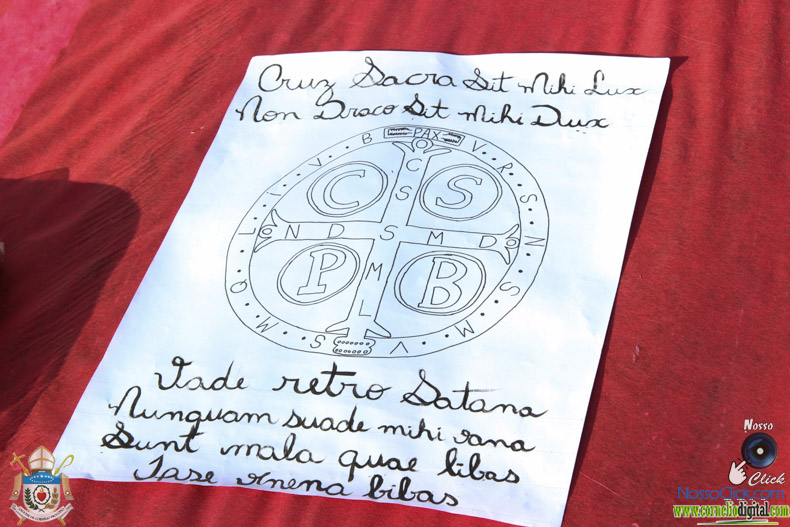 Cruz Sacra Sit Mihi Lux
Non Draco Sit Mihi Dux
PAX
V · R · S · N · S · M · V · S · M · Q · L · I · V · B
C S
C S S M L
N D S M D
P B
Vade retro Satana
Nunquam suade mihi vana
Sunt mala quae libas
Iase vnena bibas
Nosso
Click
NossoClick.com
www.corneliodigital.com